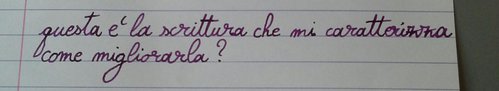 questa e' la scrittura che mi caratterizzza
come migliorarla?